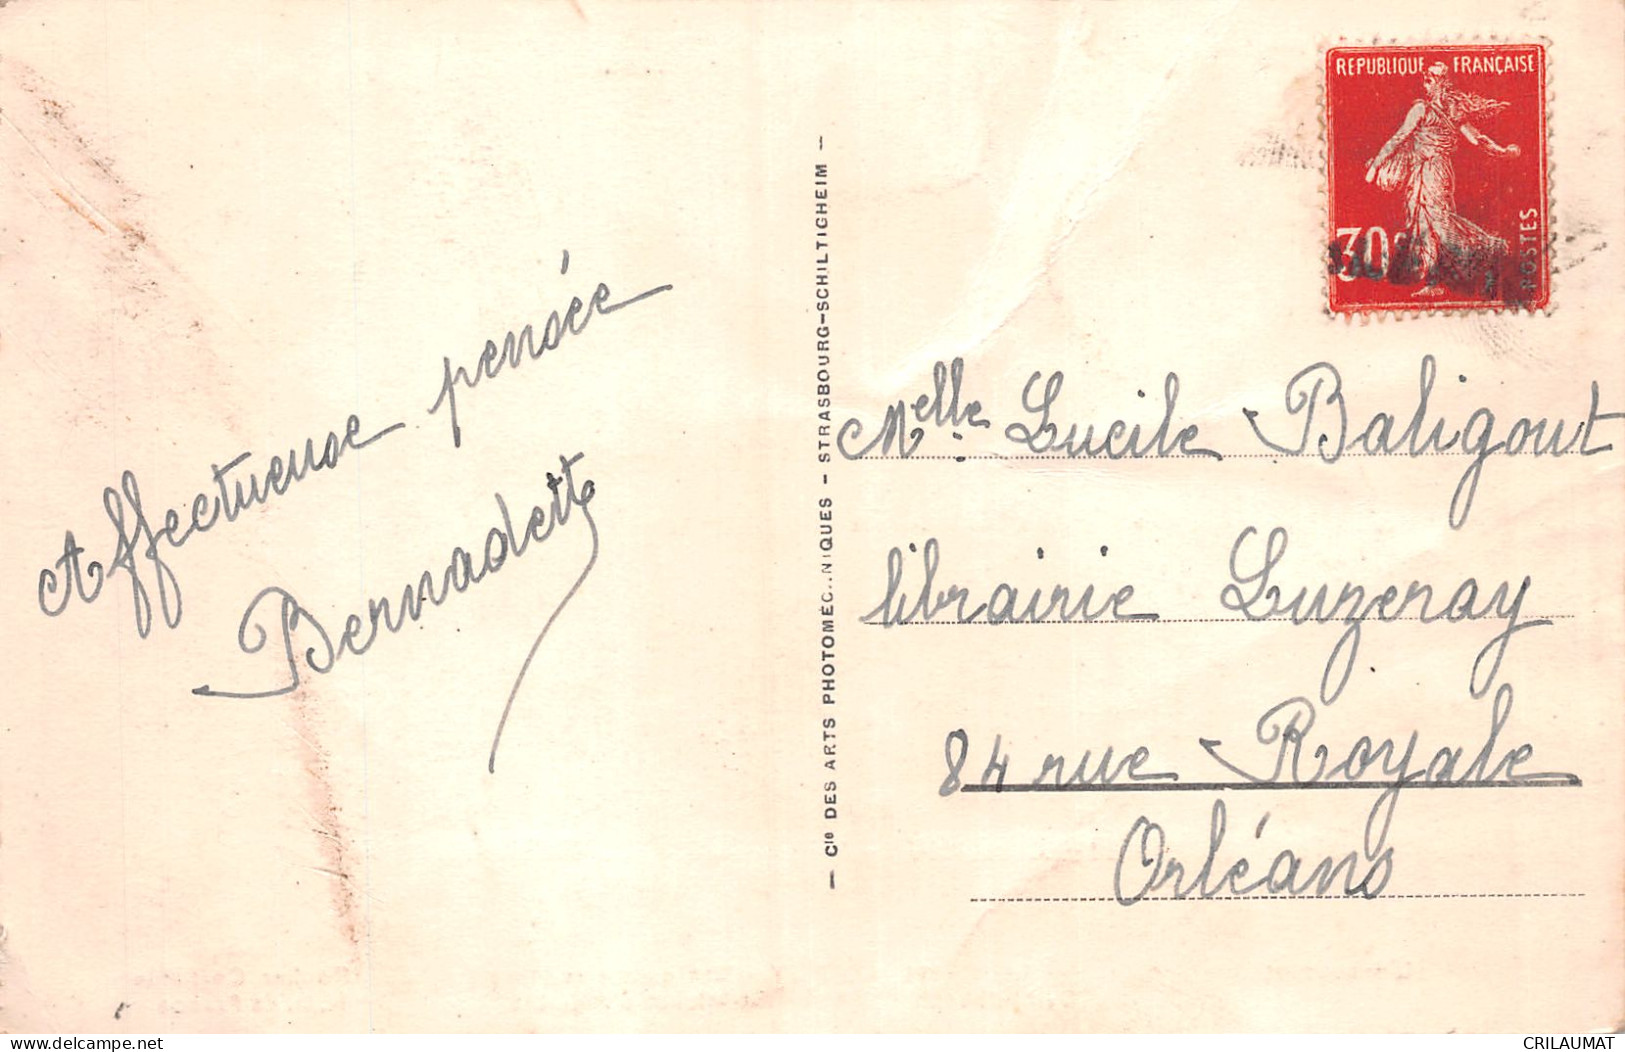 Affectueuse pensée
Bernadette
— Cie DES ARTS PHOTOMÉCANIQUES - STRASBOURG-SCHILTIGHEIM —
REPUBLIQUE FRANÇAISE
30c
POSTES
Melle Lucile Baligout
librairie Luzeray
84 rue Royale
Orléans
www.delcampe.net
CRILAUMAT